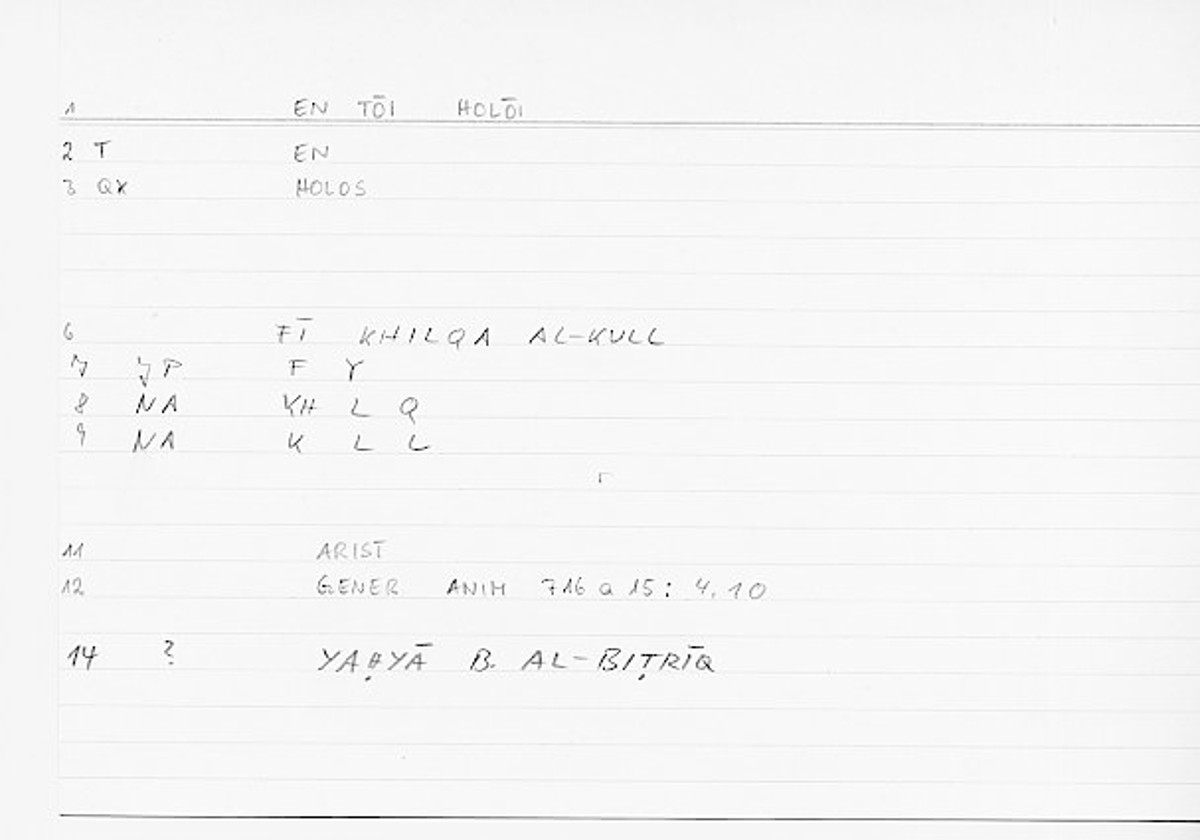 1 EN TŌI HOLŌI
2 T EN
3 QK HOLOS
6 FĪ KHILQA AL-KULL
7 JP F Y
8 NA KH L Q
9 NA K L L
11 ARIST
12 GENER ANIM 716 a 15: 4.10
14 ? YAḤYĀ B. AL-BIṬRĪQ